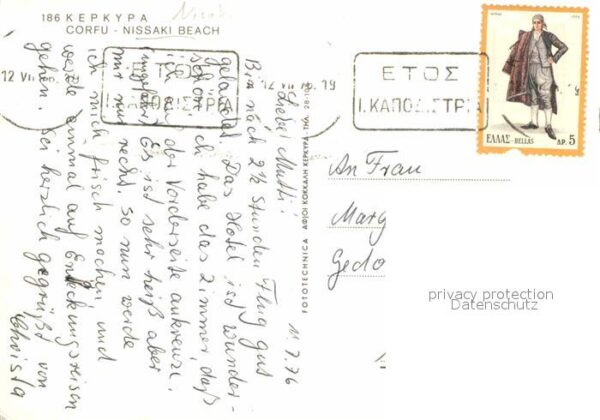 186 ΚΕΡΚΥΡΑ
CORFU - NISSAKI BEACH
12 VII 76
ΕΤΟΣ
Ι. ΚΑΠΟΔΙΣΤΡΙΑ
12 VII 76. 19
ΕΤΟΣ
Ι. ΚΑΠΟΔΙΣΤΡΙΑ
ΕΛΛΑΣ-HELLAS
ΔΡ. 5
11.7.76
Liebe Mutti!
Bin nach 2½ Stunden Flug gut
gelandet. Das Hotel ist wunder-
schön. Ich habe das Zimmer, daß
ich auf der Vorderseite ankreuze,
ungefähr. Es ist sehr heiß aber
mir nur recht. So nun werde
ich mich frisch machen und
werde einmal auf Entdeckungsreisen
gehen. Sei herzlich gegrüßt von
Christa
FOTOTECHNICA ΑΦΙΟΙ ΚΟΚΚΑΛΗ ΚΕΡΚΥΡΑ ΤΗΛ.
An Frau
Marg
Gedo
privacy protection
Datenschutz